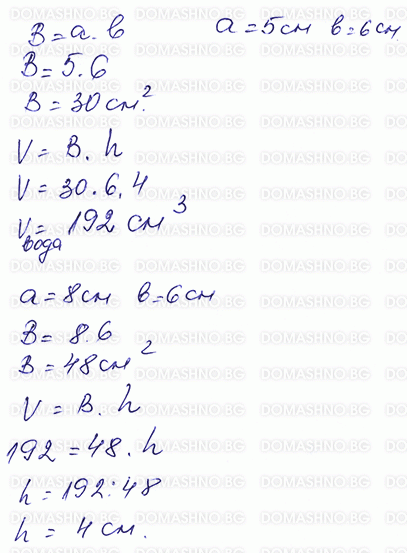 B = a . b   a = 5 см   b = 6 см
B = 5 . 6
B = 30 см².
V = B . h
V = 30 . 6,4
V вода = 192 см³
a = 8 см   b = 6 см
B = 8 . 6
B = 48 см²
V = B . h
192 = 48 . h
h = 192 : 48
h = 4 см.
DOMASHNO.BG